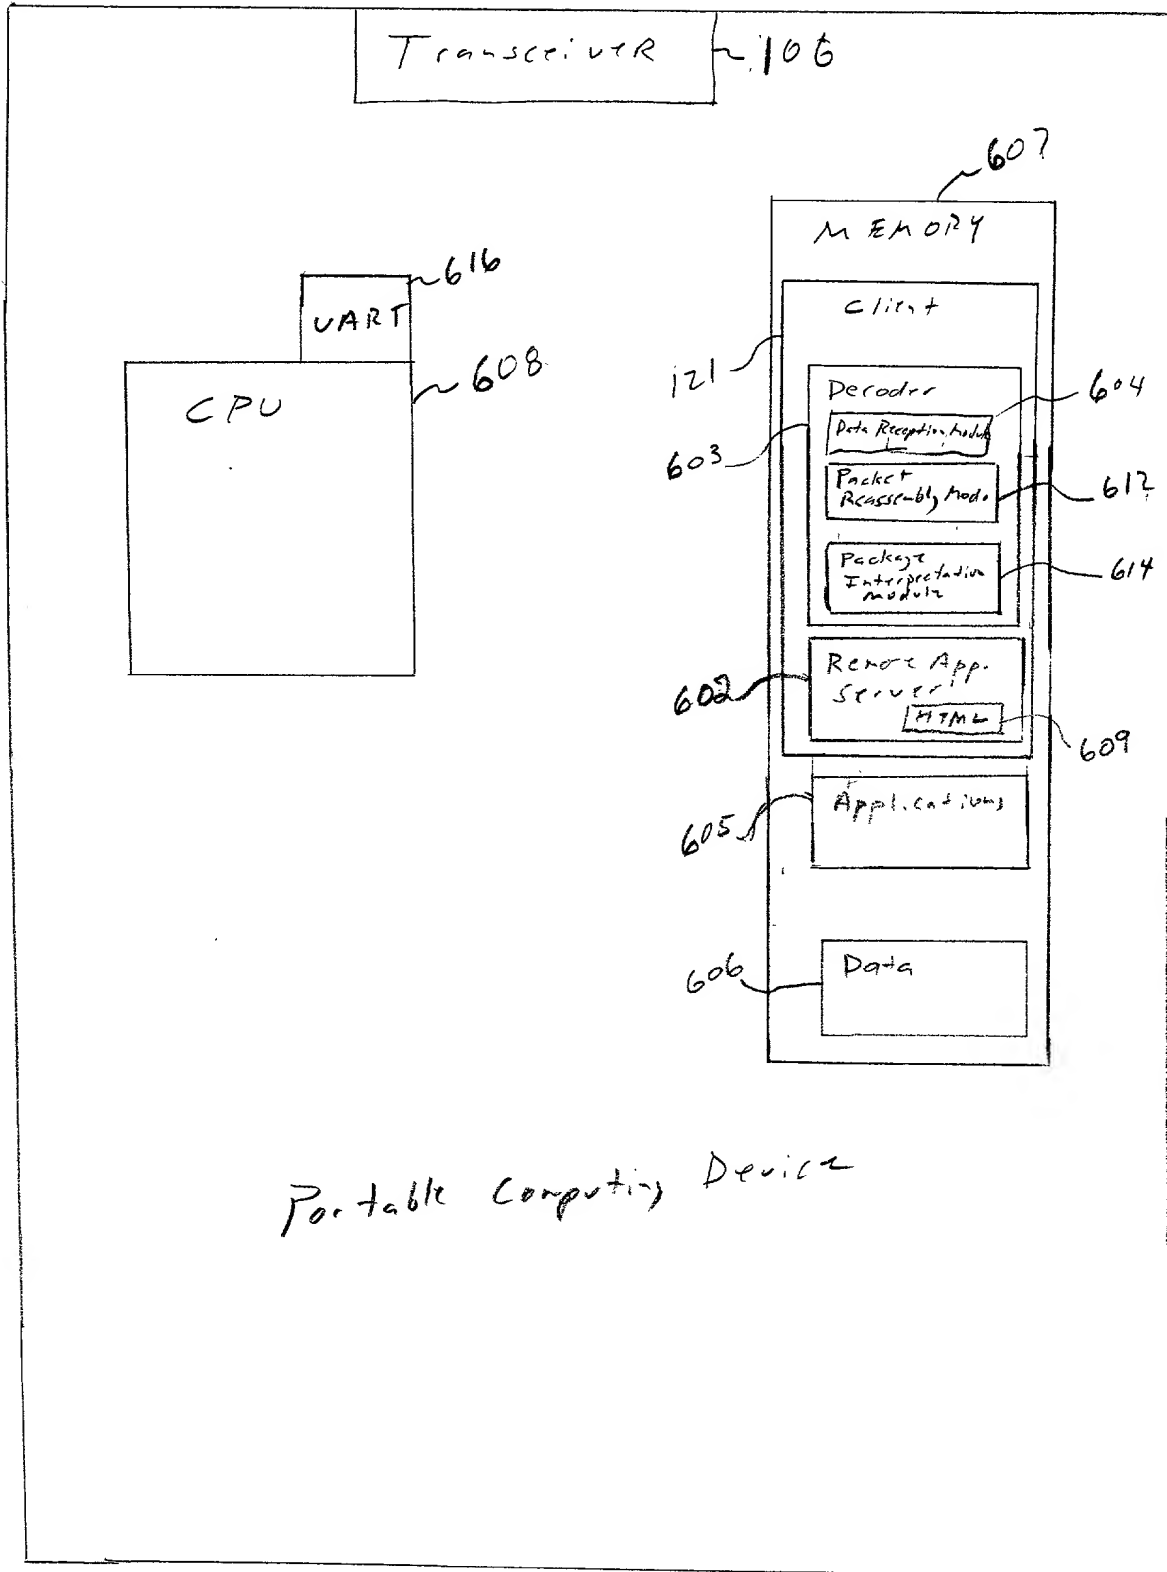 Transceiver 106
607
MEMORY
616
UART
Client
608
121
CPU
Decoder
604
Data Reception Module
603
Packet
Reassembly Modu
612
Package
Interpretation
Module
614
Remote App.
Server
602
HTML
609
Applications
605
Data
606
Portable Computing Device